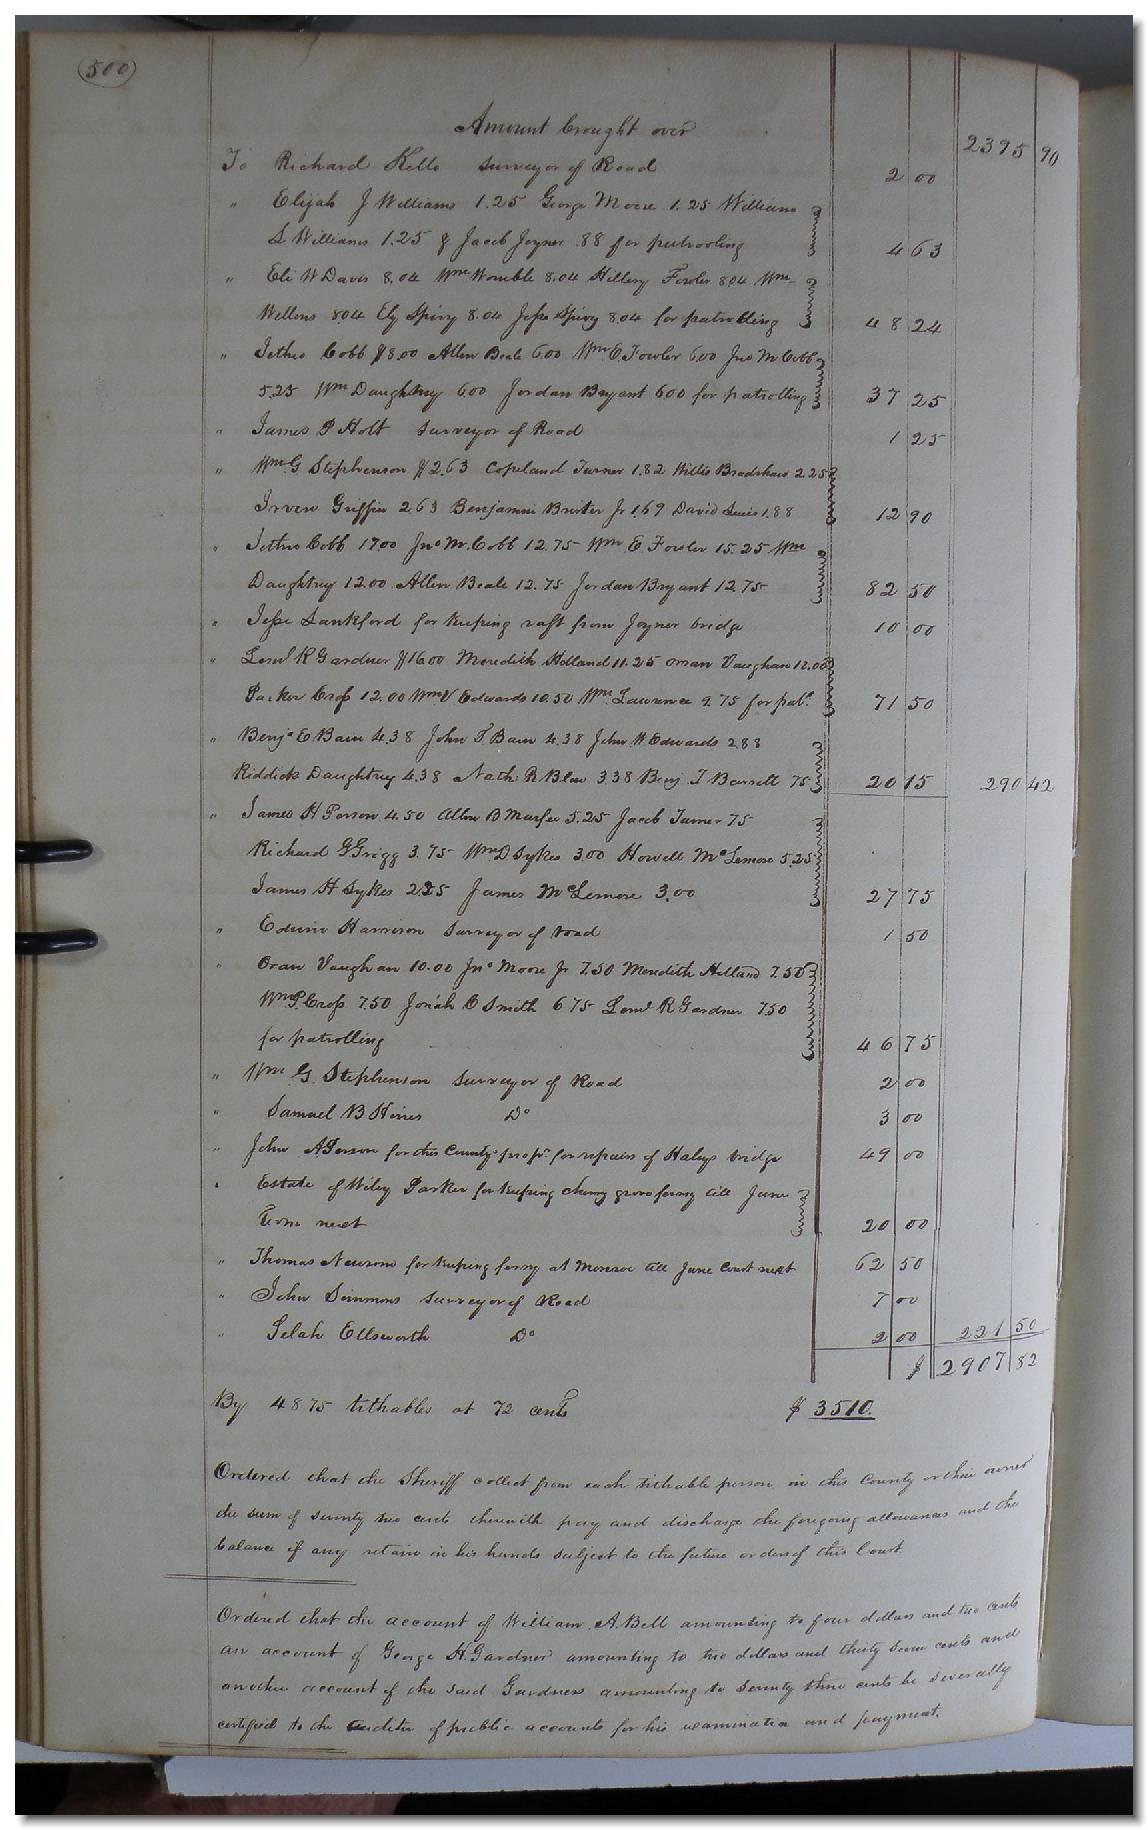 (500)
Amount brought over 2395 90
To Richard Kello Surveyor of Road 2 00
" Elijah J Williams 1.25 George Moore 1.25 William
S Williams 1.25 & Jacob Joyner .88 for patrooling 4 63
" Eli W Davis 8.04 Wm Womble 8.04 Hillery Fowler 8.04 Wm
Wellons 8.04 Ely Spivy 8.04 Jesse Spivy 8.04 for patrolling 48 24
" Jethro Cobb $8.00 Allen Beale 6.00 Wm E. Fowler 6.00 Jno M Cobb
5.25 Wm Daughtrey 6.00 Jordan Bryant 6.00 for patrolling 37 25
" James P Holt Surveyor of Road 1 25
" Wm G Stephenson $2.63 Copeland Turner 1.82 Willis Bradshaw 2.25
Irven Griffin 2.63 Benjamin Jr 1.69 David 1.88 12 90
" Jethro Cobb 17.00 Jno M. Cobb 12.75 Wm E Fowler 15.25 Wm
Daughtrey 12.00 Allen Beale 12.75 Jordan Bryant 12.75 82 50
" Jesse Lankford for keeping raft from Joyner bridge 10 00
" Leml R Gardner $16.00 Meredith Holland 11.25 Oran Vaughan 12.00
Parker Cross 12.00 Wm V Edwards 10.50 Wm Lawrence 9.75 for patl 71 50
" Benja E Bain 4.38 John T Bain 4.38 John W Edwards 2.88
Riddick Daughtrey 4.38 Nath R Blow 3.38 Benj T Barrett 75 20 15 290 42
" James H Person 4.50 Allen B 5.25 Jacob Turner 75
Richard G Grigg 3.75 Wm D Sykes 3.00 Howell McLemore 5.25
James H Sykes 2.25 James McLemore 3.00 27 75
" Edwin Harrison Surveyor of road 1 50
" Oran Vaughan 10.00 Jno Moore Jr 7.50 Meredith Holland 7.50
Wm P. Cross 7.50 Jonah C Smith 6.75 Leml R Gardner 7.50
for patrolling 46 75
" Wm G. Stephenson Surveyor of Road 2 00
" Samuel B Hines Do 3 00
" John A Person for this County's propn for repairs of Haleys bridge 49 00
" Estate of Wiley Parker for keeping cherry grove ferry till June
Term next 20 00
" Thomas Newsom for keeping ferry at Monroe till June Court next 62 50
" John Simmons Surveyor of Road 7 00
" Selah Ellsworth Do 2 00 221 50
$ 2907 82
By 4875 tithables at 72 cents $ 3510.
Ordered that the Sheriff collect from each tithable person in this County or their owner
the sum of seventy two cents therewith pay and discharge the foregoing allowances and the
balance if any retain in his hands subject to the future order of this Court
Ordered that the account of William A. Bell amounting to four dollars and two cents
an account of George H. Gardner amounting to two dollars and thirty seven cents and
another account of the said Gardner amounting to seventy three cents be severally
certified to the auditor of public accounts for his examination and payment.